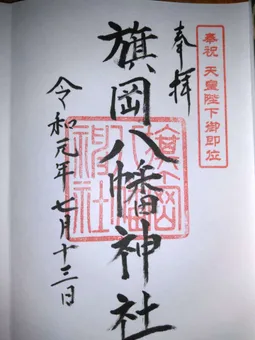 奉祝 天皇陛下御即位
奉拝
旗岡八幡神社
令和元年七月十三日